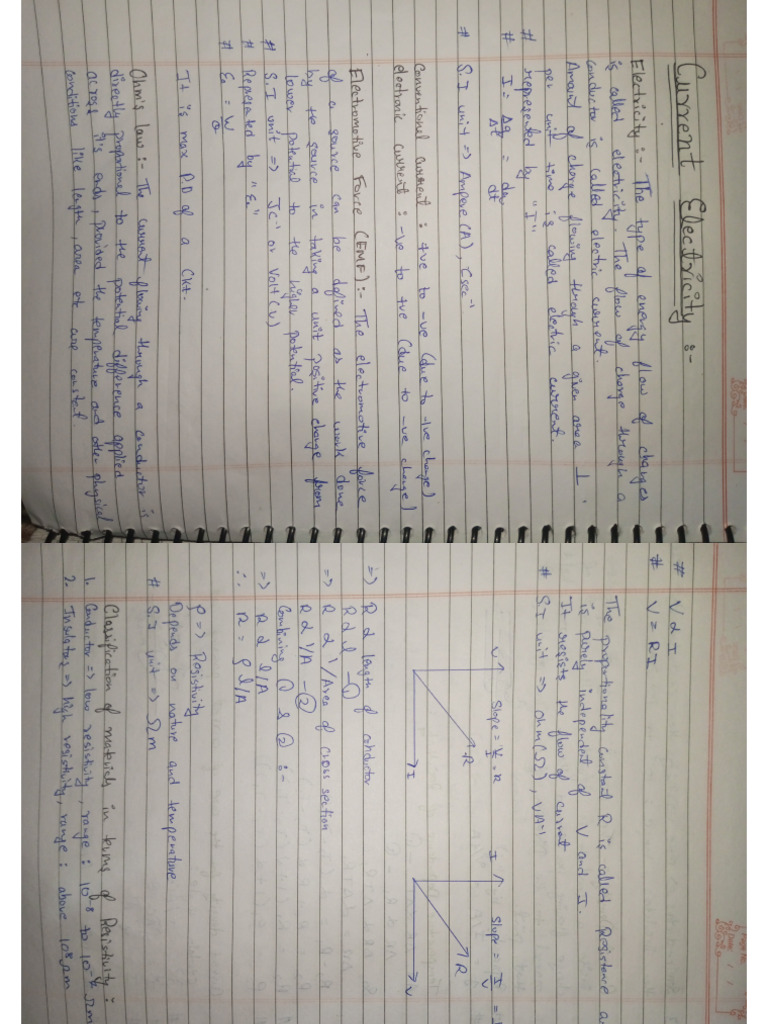 Current Electricity :-
Electricity :- The type of energy flow of charges
is called electricity. The flow of charge through a
conductor is called electric current.
Amount of charge flowing through a given area ⊥
per unit time is called electric current.
# represented by "I"
# I = Δq/Δt = dq/dt
# S.I unit => Ampere (A), Csec⁻¹
Conventional current : +ve to -ve (due to +ve charge)
electronic current : -ve to +ve (due to -ve charge)
Electromotive Force (EMF) :- The electromotive force
of a source can be defined as the work done
by the source in taking a unit positive charge from
lower potential to the higher potential.
# S.I unit => JC⁻¹ or Volt (V)
# Represented by "ε"
# ε = W/Q
It is max P.D of a Ckt.
Ohm's law :- The current flowing through a conductor is
directly proportional to the potential difference applied
across it's ends, provided the temperature and other physical
conditions like length, area etc are constant
# V α I
# V = RI
The proportionality constant R is called Resistance
is purely independent of V and I.
It resists the flow of current
# S.I unit => ohm (Ω), VA⁻¹
V Slope = V/I = R R I
I Slope = I/V = R V
=> R α length of conductor
R α l - ①
=> R α 1/Area of cross section
R α 1/A - ②
Combining ① & ② :-
=> R α l/A
∴ R = ρ l/A
ρ => Resistivity
Depends on nature and temperature
# S.I unit => Ωm
Classification of materials in terms of Resistivity :
1. Conductor => low resistivity, range : 10⁻⁸ to 10⁻⁶ Ωm
2. Insulators => high resistivity, range : above 10⁸ Ωm